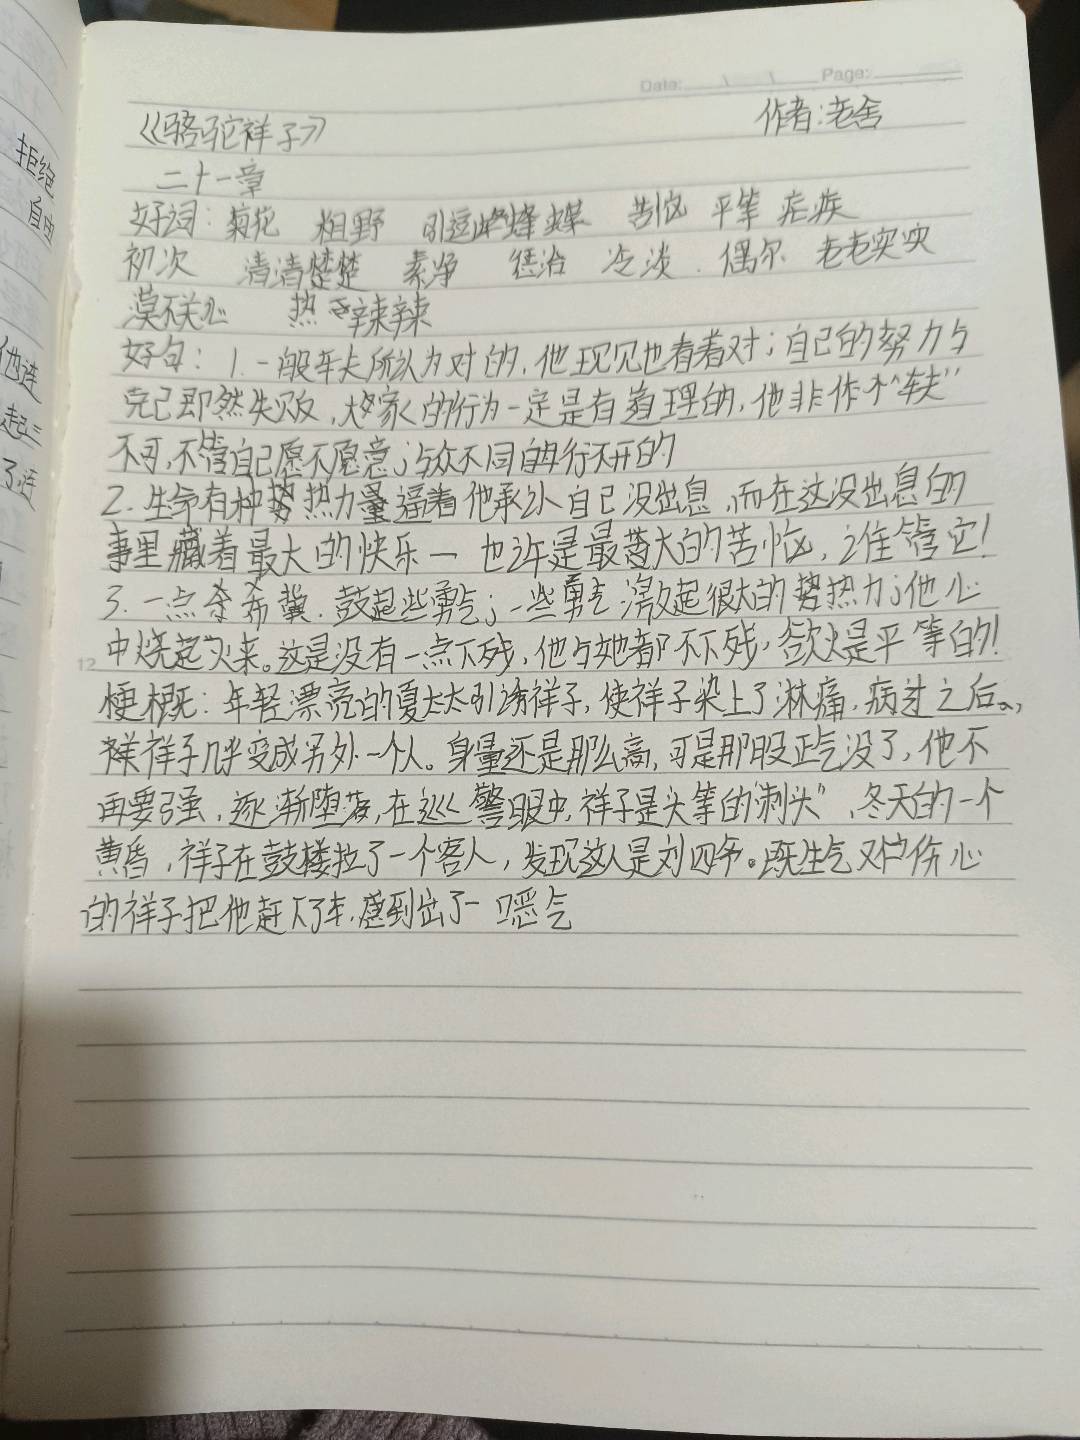 Date: Page:
《骆驼祥子》 作者:老舍
二十一章
好词: 菊花 粗野 引逗蜂蝶 苦恼 平等 疟疾
初次 清清楚楚 素净 惩治 冷淡. 偶尔 老老实实
漠不关心 热辣辣
好句: 1. 一般车夫所认为对的,他现在也看着对;自己的努力与
克己即然失败,大家的行为一定是有道理的,他非作个"车夫"
不可,不管自己愿不愿意;与众不同自是行不开的
2. 生命有种热力量逼着他承认自己没出息,而在这没出息的
事里藏着最大的快乐一 也许是最大的苦恼,谁管它!
3. 一点希冀,鼓起些勇气;一些勇气激起很大的热力;他心
中烧起火来。这是没有一点下贱,他与她都不下贱,欲火是平等的!
12
梗概: 年轻漂亮的夏太太引诱祥子,使祥子染上了淋病,病过之后,
祥子几乎变成另外一个人。身量还是那么高,可是那股正气没了,他不
再要强,逐渐堕落,在巡警眼中,祥子是头等的"刺头",冬天的一个
黄昏,祥子在鼓楼拉了一个客人,发现这人是刘四爷。既生气又伤心
的祥子把他赶下了车,感到出了一口恶气
拒绝
自由
他连
起
了活